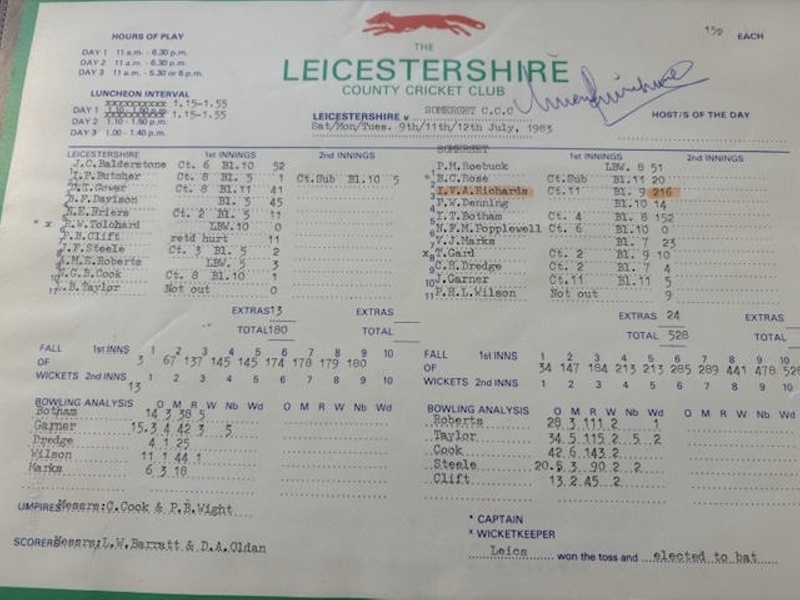 HOURS OF PLAY
DAY 1 11 a.m. - 6.30 p.m.
DAY 2 11 a.m. - 6.30 p.m.
DAY 3 11 a.m. - 5.30 or 6 p.m.
LUNCHEON INTERVAL
1.15-1.55
DAY 1 1.10 - 1.50 p.m.
1.15-1.55
DAY 2 1.10 - 1.50 p.m.
DAY 3 1.00 - 1.40 p.m.
15p EACH
THE
LEICESTERSHIRE
COUNTY CRICKET CLUB
LEICESTERSHIRE v SOMERSET C.C.C
Sat/Mon/Tues. 9th/11th/12th July, 1983
HOST/S OF THE DAY
LEICESTERSHIRE 1st INNINGS 2nd INNINGS
J.C.Balderstone Ct. 6 Bl.10 52
I.P.Butcher Ct. 8 Bl. 5 1 Ct.Sub Bl.10 5
D.I.Gower Ct. 8 Bl.11 41
B.F.Davison Bl. 5 45
N.E.Briers Ct. 2 Bl. 5 11
* x R.W.Tolchard LBW.10 0
P.B.Clift retd hurt 11
J.F.Steele Ct. 3 Bl. 5 2
A.M.E.Roberts LBW. 5 3
10 N.G.B.Cook Ct. 8 Bl.10 1
11 L.B.Taylor Not out 0
EXTRAS 13 EXTRAS
TOTAL 180 TOTAL
FALL 1st INNS 1 2 3 4 5 6 7 8 9 10
OF 3 67 137 145 145 174 178 179 180
WICKETS 2nd INNS 1 2 3 4 5 6 7 8 9 10
13
BOWLING ANALYSIS O M R W Nb Wd O M R W Nb Wd
Botham 14 3 38 5
Garner 15.3 4 42 3 5
Dredge 4 1 25
Wilson 11 1 44 1
Marks 6 3 18
UMPIRES Messrs:C.Cook & P.B.Wight
SCORERS Messrs:L.W.Barratt & D.A.Oldan
SOMERSET
1st INNINGS 2nd INNINGS
P.M.Roebuck LBW. 8 51
* B.C.Rose Ct.Sub Bl.11 20
I.V.A.Richards Ct.11 Bl. 9 216
P.W.Denning Bl.10 14
I.T.Botham Ct. 4 Bl. 8 152
N.F.M.Popplewell Ct. 6 Bl.10 0
V.J.Marks Bl. 7 23
x T.Gard Ct. 2 Bl. 9 10
C.H.Dredge Ct. 2 Bl. 7 4
10 J.Garner Ct.11 Bl.11 5
11 P.H.L.Wilson Not out 9
EXTRAS 24 EXTRAS
TOTAL 528 TOTAL
FALL 1st INNS 1 2 3 4 5 6 7 8 9 10
OF 34 147 184 213 213 285 289 441 478 528
WICKETS 2nd INNS 1 2 3 4 5 6 7 8 9 10
BOWLING ANALYSIS O M R W Nb Wd O M R W Nb Wd
Roberts 28 3.111 2 1
Taylor 34.5.115.2 5 2
Cook 42.6.143.2
Steele 20.5.3.90.2 2
Clift 13.2.45..2
* CAPTAIN
x WICKETKEEPER
Leics won the toss and elected to bat